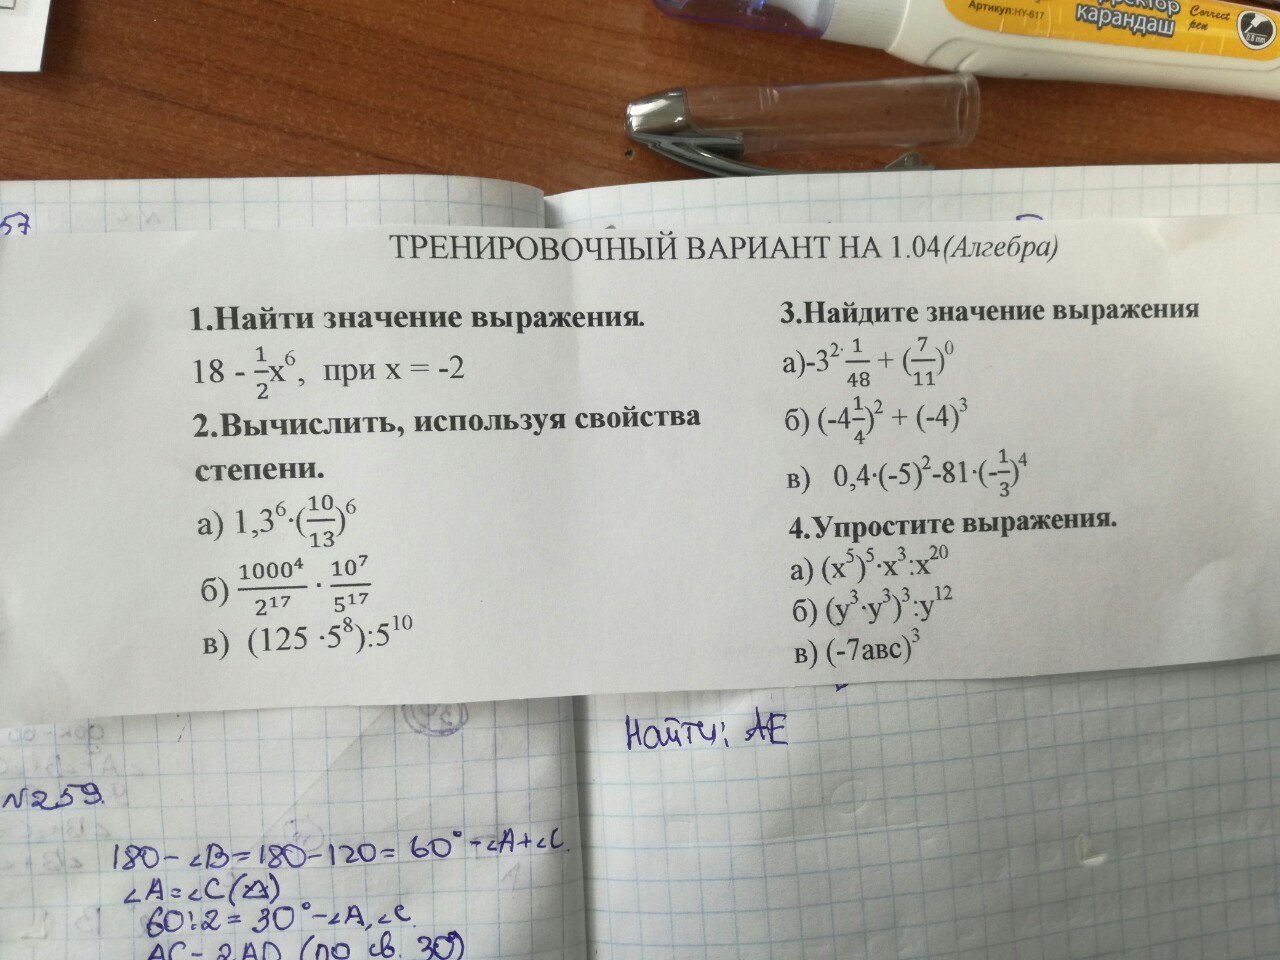 рректор
карандаш
Артикул:HY-617
Correct
pen
0.8 mm
57
ТРЕНИРОВОЧНЫЙ ВАРИАНТ НА 1.04(Алгебра)
1.Найти значение выражения.
18 - 1/2 x⁶, при x = -2
2.Вычислить, используя свойства
степени.
а) 1,3⁶·(10/13)⁶
б) 1000⁴/2¹⁷ · 10⁷/5¹⁷
в) (125 ·5⁸):5¹⁰
3.Найдите значение выражения
а)-3²· 1/48 + (7/11)⁰
б) (-4 1/4)² + (-4)³
в) 0,4·(-5)²-81·(-1/3)⁴
4.Упростите выражения.
а) (x⁵)⁵·x³:x²⁰
б) (y³·y³)³:y¹²
в) (-7авс)³
Найти: AE
№259.
180-∠B=180-120=60°-∠A+∠C.
∠A=∠C(△)
60:2=30°-∠A,∠C.
AC=2AD (по св. 30°)